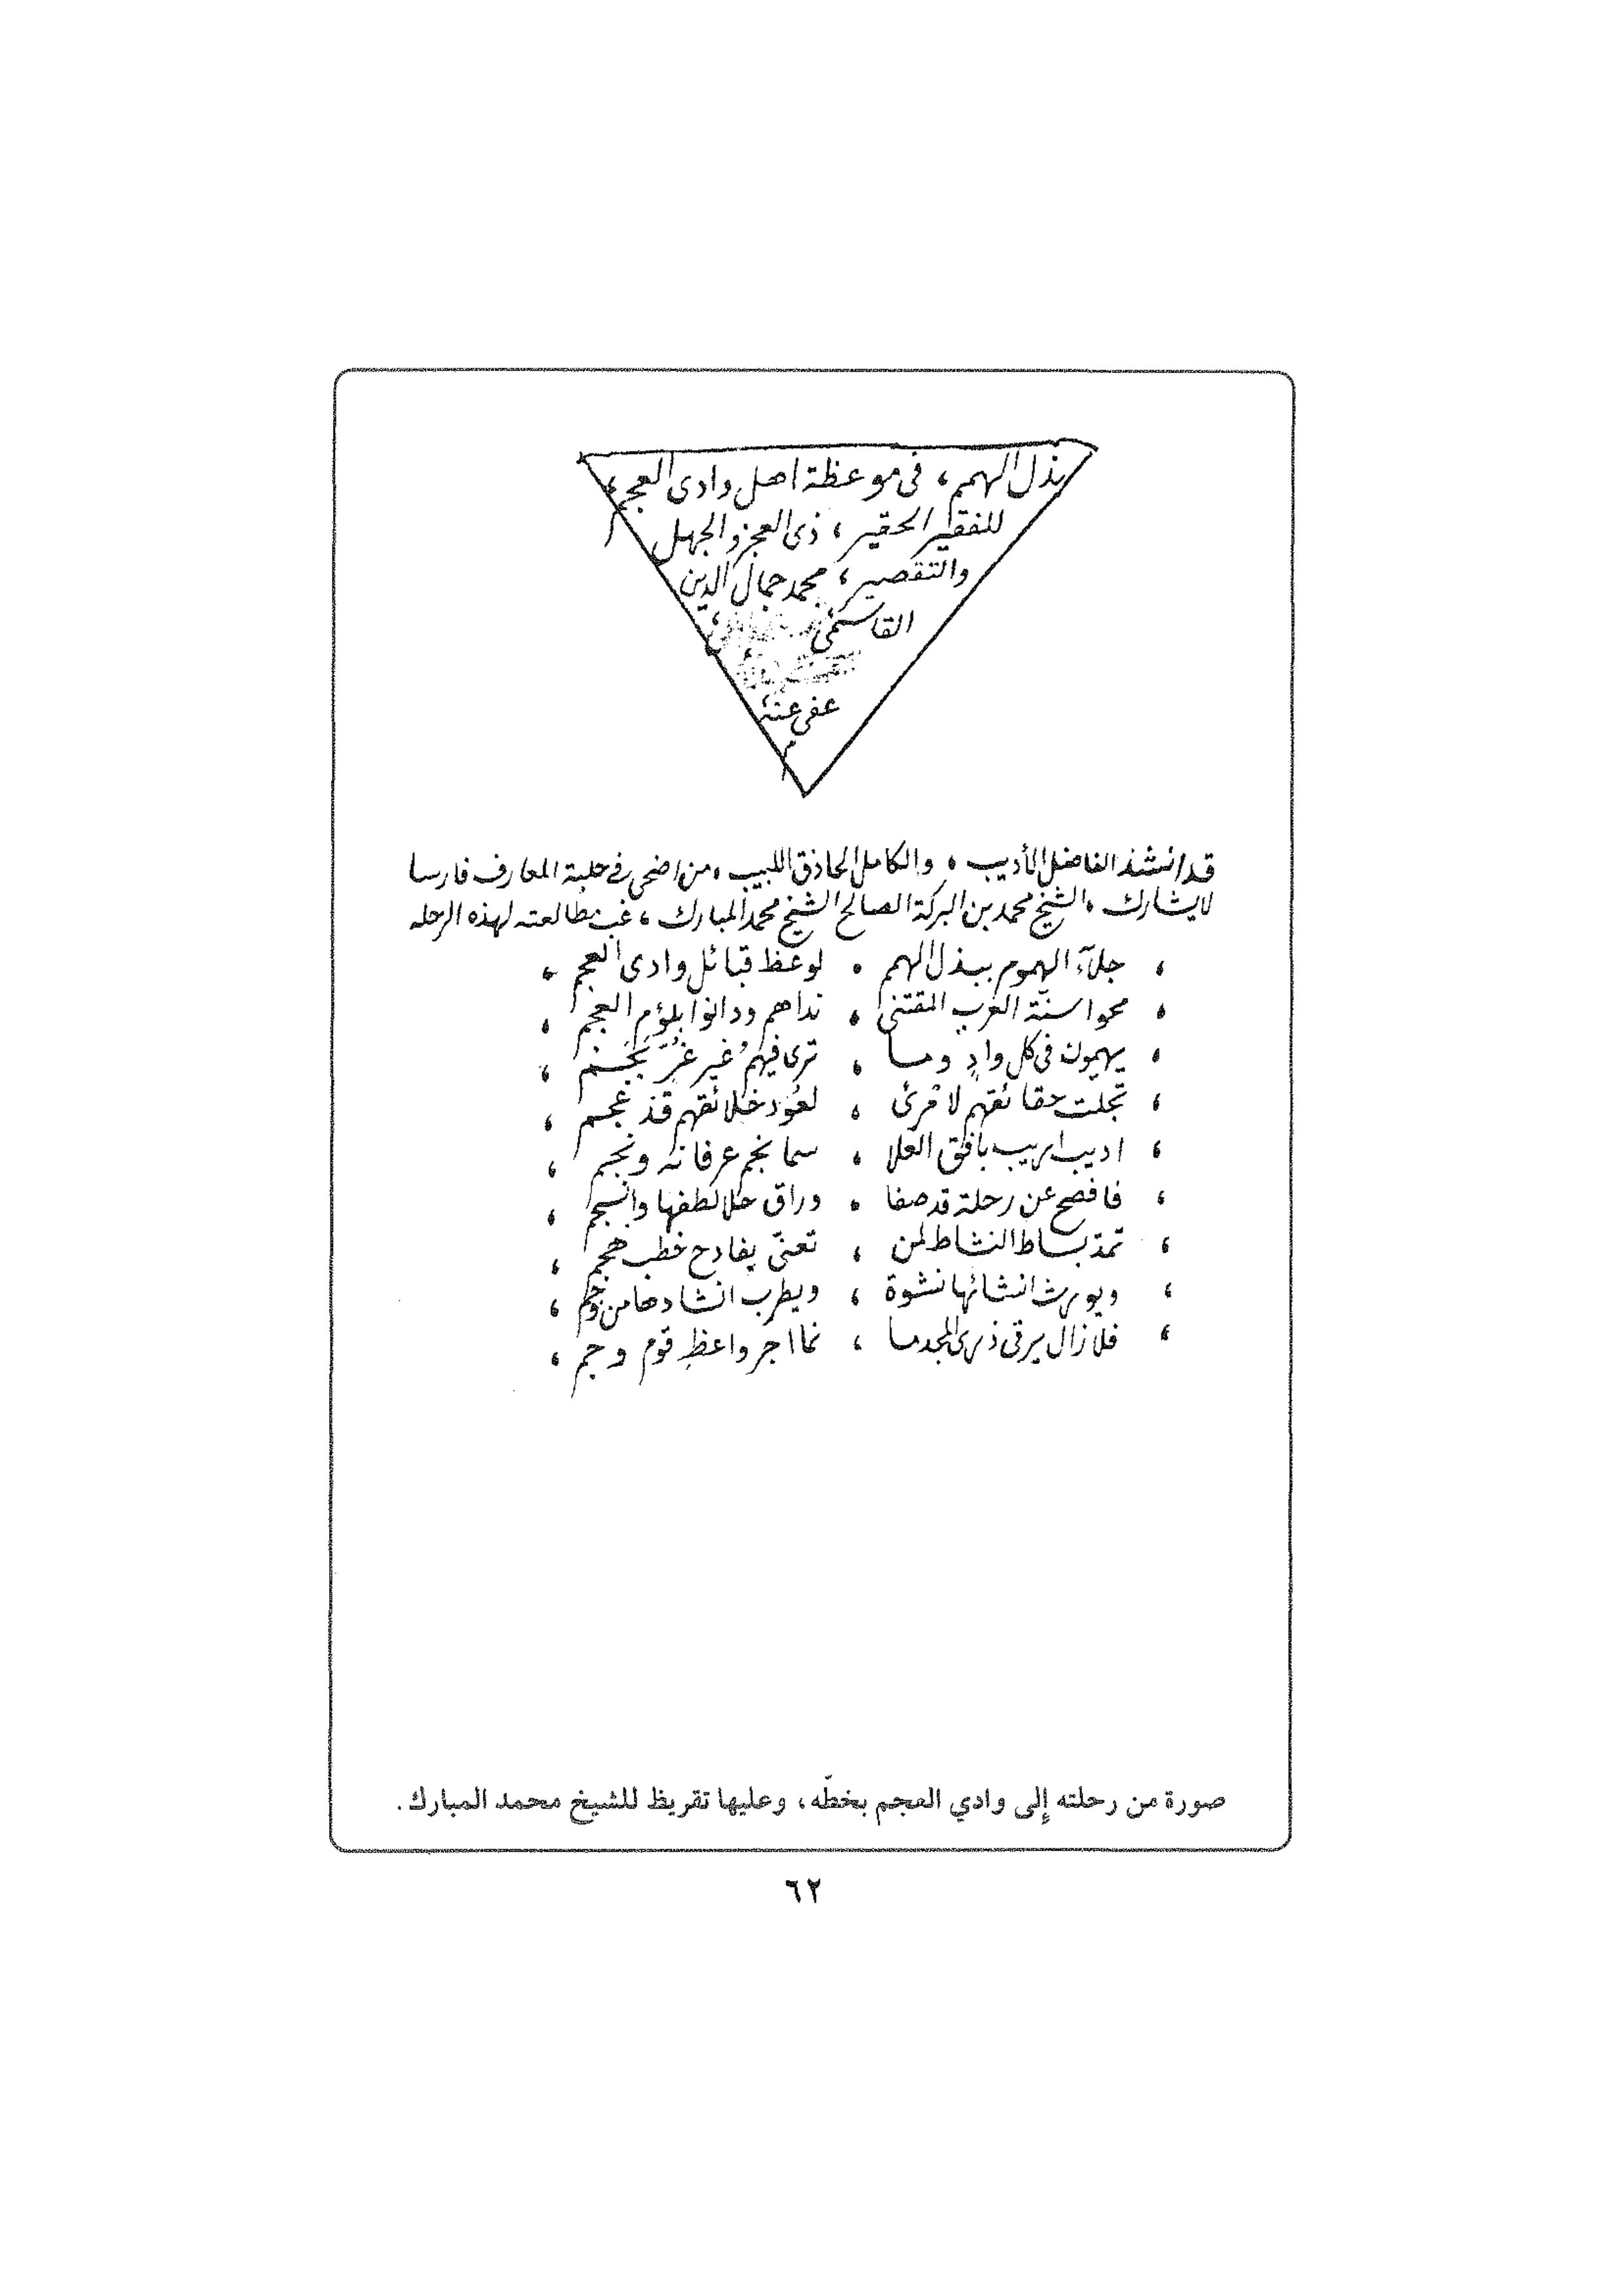 بذل الهمم، في موعظة اهل وادى العجم،
للفقير الحقير، ذى العجز والجهل
والتقصير، محمد جمال الدين
القاسمي
عفي عنه
م
قد انشد الفاضل الأديب، والكامل الحاذق اللبيب، من اضحى في حلبة المعارف فارسا
لا يشارك، الشيخ محمد بن البركة الصالح الشيخ محمد المبارك، غب مطالعته لهذه الرحله
، جلآء الهموم ببذل الهمم ، لوعظ قبائل وادى العجم ،
، محوا سنّة العرب المقتنى ، نداهم ودانوا بلؤم العجم ،
، يهيمون في كل وادٍ وما ، ترى فيهم غير غرّ
، تجلت حقائقهم لامرئ ، لعود خلائقهم قد عجم ،
، اديب اريب بافق العلا ، سما نجم عرفانه ونجم ،
، فافصح عن رحلة قد صفا ، وراق حلا لطفها وانسجم ،
، تمدّ بساط النشاط لمن ، تعنّى بفادح خطب هجم ،
، ويورث انشائها نشوة ، ويطرب انشادها من وجم ،
، فلا زال يرقى ذرى المجد ما ، نما اجر واعظِ قوم وجم ،
صورة من رحلته إلى وادي العجم بخطّه، وعليها تقريظ للشيخ محمد المبارك.
٦٢